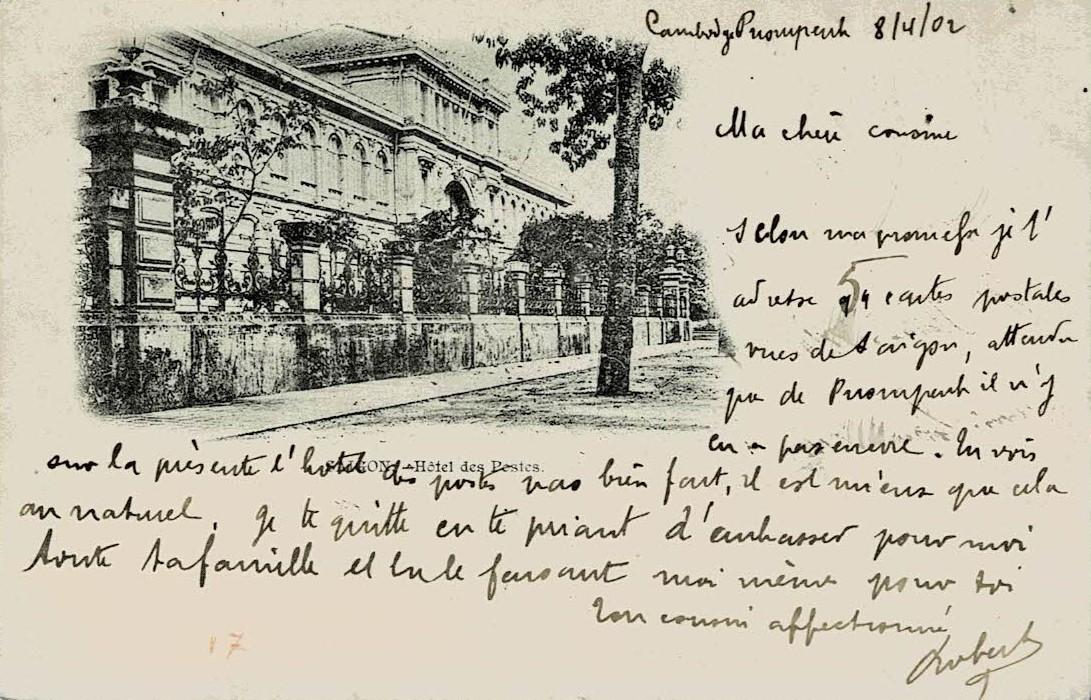 Cambodge Pnompenh 8/4/02
Ma chère cousine
Selon ma promesse je t'
adresse cartes postales
vues de Saigon, attendu
que de Pnompenh il n'y
en a pas encore. Tu vois
SAIGON. - Hôtel des Postes.
sur la présente l'hotel des postes pas bien fait, il est mieux que cela
au naturel. Je te quitte en te priant d'embrasser pour moi
toute ta famille et en le faisant moi même pour toi
Ton cousin affectionné
Robert
17